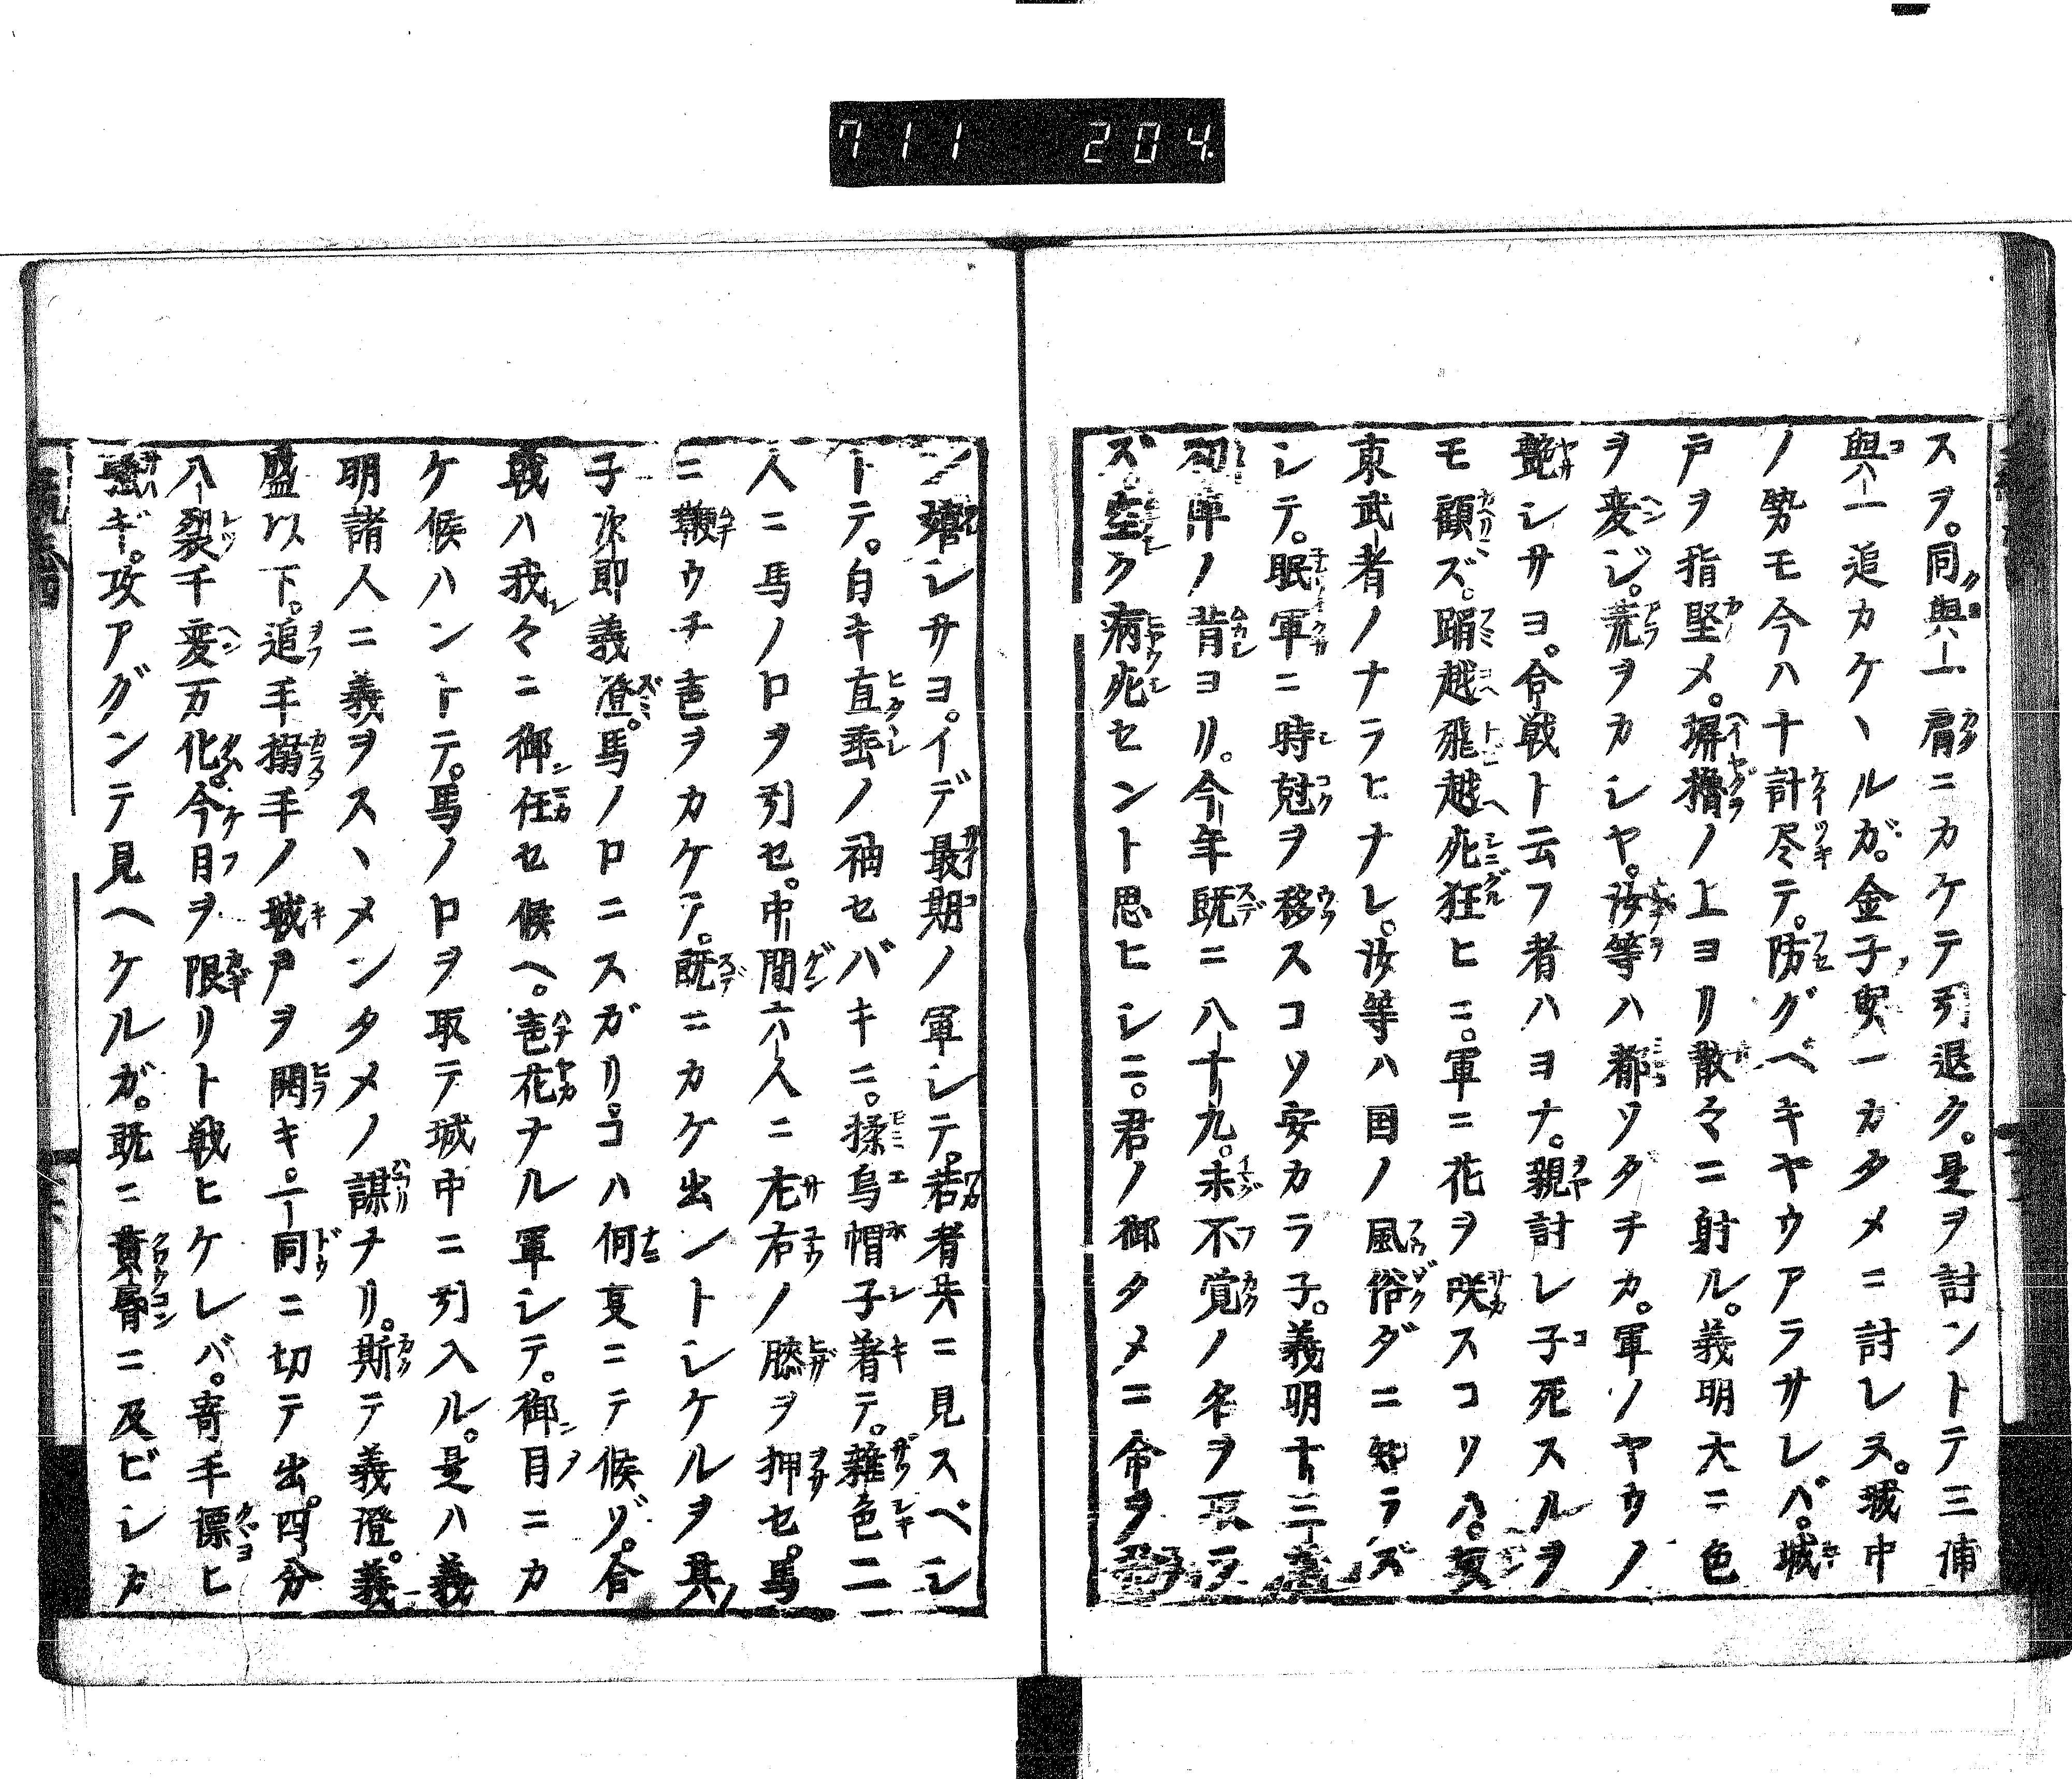 711 204.
スヲ。同與一肩ニカケテ引退ク。是ヲ討ントテ三浦
與一追カケヽルガ。金子與一カタメニ討レス。城中
ノ勢モ今ハ十計尽テ。防グベキヤウアラサレバ。城
戸ヲ指堅メ。塀櫓ノ上ヨリ散々ニ射ル。義明大ニ色
ヲ変ジ。荒ヲカシヤ。汝等ハ都ソダチカ。軍ノヤウノ
艶シサヨ。合戦ト云フ者ハヨナ。親討レ子死スルヲ
モ顧ズ。踊越飛越死狂ヒニ。軍ニ花ヲ咲スコソハ。坂
東武者ノナラヒナレ。汝等ハ国ノ風俗ダニ知ラズ
シテ。眠軍ニ時尅ヲ移スコソ安カラ子。義明十三歳
初陣ノ昔ヨリ。今年既ニ八十九。未不覚ノ名ヲ取ラ
ズ。空ク病死セント思ヒシニ。君ノ御タメニ命ヲ
ン嬉シサヨ。イデ最期ノ軍シテ。若者共ニ見スベシ
トテ。白キ直垂ノ袖セバキニ。揉烏帽子着テ。雑色二
人ニ馬ノ口ヲ引セ。中間六人ニ左右ノ膝ヲ押セ。馬
ニ鞭ウチ壱ヲカケテ。既ニカケ出ントシケルヲ其
子次郎義澄。馬ノ口ニスガリ。コハ何夏ニテ候ゾ。合
戦ハ我々ニ御任セ候ヘ。壱花ナル軍シテ。御目ニカ
ケ候ハントテ。馬ノ口ヲ取テ城中ニ引入ル。是ハ義
明諸人ニ義ヲスヽメンタメノ謀ナリ。斯テ義澄。義
盛以下。追手搦手ノ城戸ヲ開キ。一同ニ切テ出。四分
八裂千変万化。今日ヲ限リト戦ヒケレバ。寄手漂ヒ
騒ギ。攻アグンテ見ヘケルガ。既ニ黄昏ニ及ビシカ